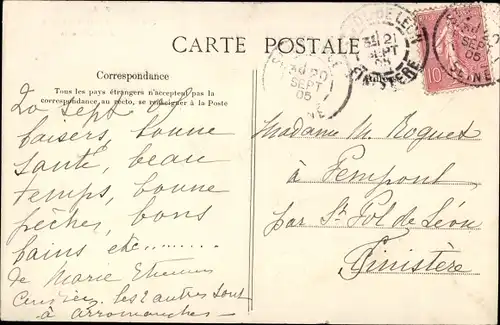 CARTE POSTALE
Correspondance
Tous les pays étrangers n'acceptent pas la
correspondance au recto, se renseigner à la Poste
20 Sept 05
baisers, bonne
santé, beau
temps, bonne
pêches, bons
bains etc.........
de Marie Etienne
Les 2 autres sont
à Arromanches -
Madame M. Rogues
à Pempoul
par St Pol de Léon
Finistère
20
SEPT
05
21
SEPT
05
FINISTERE
SEPT
05
SEINE
10